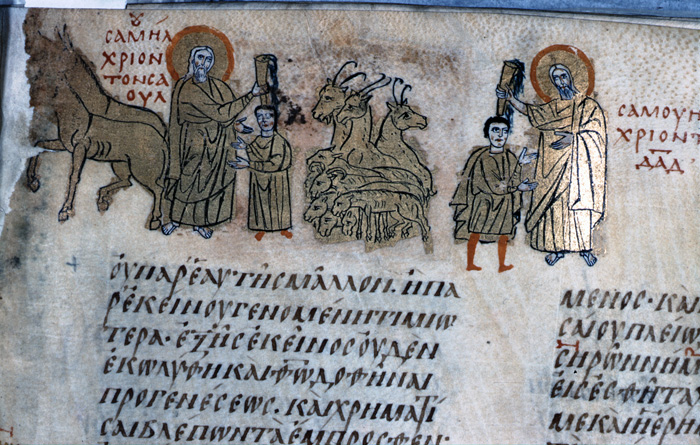 ΣΑΜΗΛ
ΧΡΙΟΝ
ΤΟΝΣΑ
ΟΥΛ
ΣΑΜΟΥΗ
ΧΡΙΟΝΤ
ΔΑΔ
ΟΥΠΑΡΕΑΥΤΗΣΜΑΛΛΟΝ. ΗΠΑ
ΡΕΚΕΙΝΟΥΓΕΝΟΜΕΝΗΤΙΜΙΩ
ΤΕΡΑ· ΕΞΗΣΕΚΕΙΝΟΣΟΥΔΕΝ
ΕΚΩΛΥΘΗΚΑΙΦΩΔΟΘΗΝΑΙ
ΠΡΟΓΕΝΕΣΕΩΣ. ΚΑΙΧΡΗΜΑΤΙ
ΣΑΙΒΛΕΠΩΝΤΑΕΜΠΡΟΣΘΕΝ·
ΜΕΝΟΣ· ΚΑ
ΣΑΙΟΥΠΛΕΙΩ
ΕΙΣΕΣΘΗΤΑ